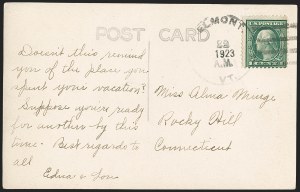 POST CARD
1923
A.M.
VT.
Doesn't this remind
you of the place you
spent your vacation?
Suppose you're ready
for another by this
time. Best regards to
all
Edna & Don
Miss Alma
Rocky Hill
Connecticut